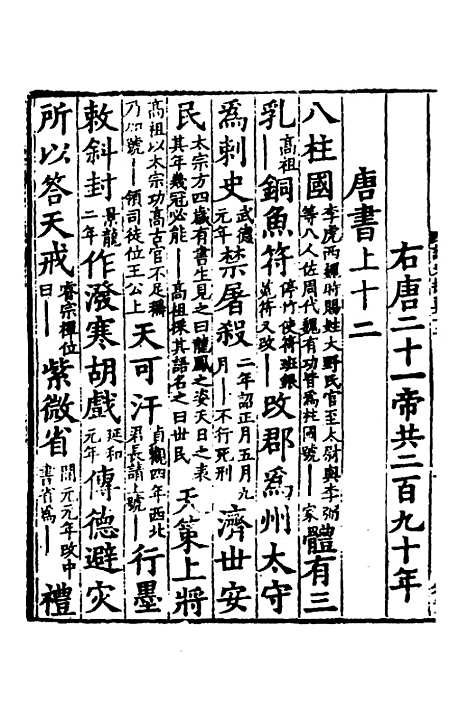 右唐二十一帝共二百九十年
唐書上十二
八柱國李虎西魏時賜姓大野氏官至太尉與李弼等八人佐周代魏有功皆為柱國號——家體有三
乳高祖——銅魚符停竹使符班銀菟符又改——改郡為州太守
為刺史武德元年禁屠殺二年詔正月五月九月——不行死刑濟世安
民太宗方四歲有書生見之曰龍鳳之姿天日之表其年幾冠必能——高祖採其語名之曰世民天策上將
高祖以太宗功高古官不足稱乃加號——領司徒位王公上天可汗貞觀四年西北君長請上號——行墨
敕斜封景龍二年作潑寒胡戲延和元年傳德避灾
所以答天戒睿宗禪位曰——紫微省開元元年改中書省為——禮